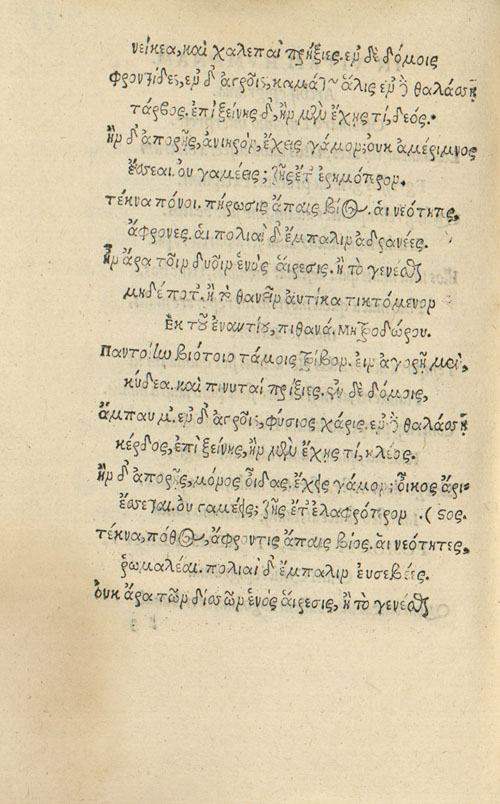 νείκεα, καὶ χαλεπαὶ πρήξιες. ἐν δὲ δόμοις
φροντίδες, ἐν δ' ἀγροῖς, καμάτων ἅλις ἐν δὲ θαλάσσῃ
τάρβος. ἐπὶ ξείνης δ', ἢν μὲν ἔχῃς τί, δέος.
ἢν δ' ἀπορῇς, ἀνιηρόν, ἔχεις γάμον; οὐκ ἀμέριμνος
ἔσσεαι. οὐ γαμέεις; ζῇς ἔτ' ἐρημότρον.
τέκνα πόνοι. πήρωσις ἄπαις βίος. αἱ νεότητες,
ἄφρονες. αἱ πολιαὶ δ' ἔμπαλιν ἀδρανέες.
ἦν ἄρα τοῖν δυοῖν ἑνὸς αἵρεσις. ἢ τὸ γενέσθαι
μηδέ ποτ'. ἢ τὸ θανεῖν αὐτίκα τικτόμενον
Ἐκ τοῦ ἐναντίου, πιθανά. Μητροδώρου.
Παντοίην βιότοιο τάμοις τρίβον. εἰν ἀγορῇ μὲν,
κύδεα. καὶ πινυταὶ πρήξιες. ἐν δὲ δόμοις,
ἄμπαυμ'. ἐν δ' ἀγροῖς, φύσιος χάρις. ἐν δὲ θαλάσσῃ
κέρδος, ἐπὶ ξείνης, ἢν μὲν ἔχῃς τί, κλέος.
ἢν δ' ἀπορῇς, μόνος οἶδας, ἔχεις γάμον; οἶκος ἄρι-
ἔσσεται. οὐ γαμέεις; ζῇς ἔτ' ἐλαφρότρον .(στος.
τέκνα, πόθος, ἄφροντις ἄπαις βίος. αἱ νεότητες,
ῥωμαλέαι. πολιαὶ δ' ἔμπαλιν εὐσεβέες.
οὐκ ἄρα τῶν δισσῶν ἑνὸς αἵρεσις, ἢ τὸ γενέσθαι